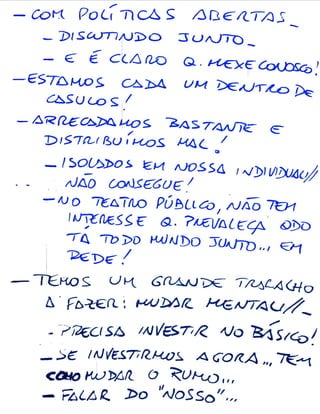 - COM POLÍTICAS ABERTAS -
- DISCUTINDO JUNTO -
- E É CLARO Q. MEXE CONOSCO!
- ESTAMOS CADA UM DENTRO DE
CASULOS!
- ARRECADAMOS BASTANTE E
DISTRIBUÍMOS MAL!
- ISOLADOS EM NOSSA INDIVIDUALI//
NÃO CONSEGUE!
- NO TEATRO PÚBLICO, NÃO TEM
INTERESSE Q. PREVALEÇA QDO
TÁ TODO MUNDO JUNTO... EM
REDE!
- TEMOS UM GRANDE TRABALHO
A FAZER: MUDAR MENTALI//
- PRECISA INVESTIR NO BÁSICO!
- SE INVESTIRMOS AGORA... TEM
COMO MUDAR O RUMO...
- FALAR DO "NOSSO"...